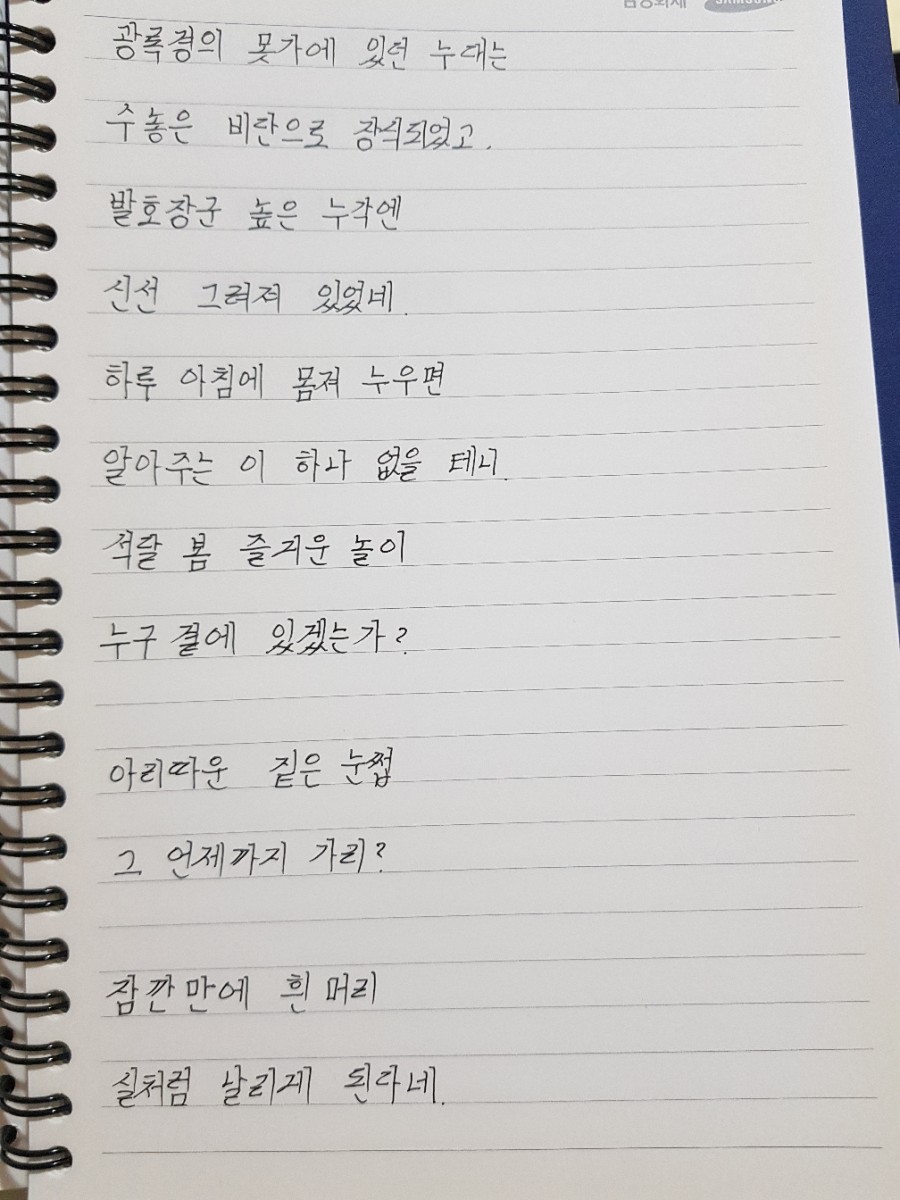 삼성화재 SAMSUNG
광록경의 못가에 있던 누대는
수놓은 비단으로 장식되었고.
발호장군 높은 누각엔
신선 그려져 있었네.
하루 아침에 몸져 누우면
알아주는 이 하나 없을 테니.
석달 봄 즐거운 놀이
누구 곁에 있겠는가?
아리따운 짙은 눈썹
그 언제까지 가리?
잠깐만에 흰 머리
실처럼 날리게 된다네.